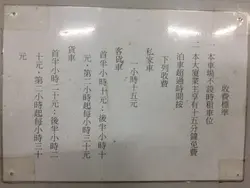 收費標準
一 本車場不設時租車位
二 本大廈業主享有十五分鐘免費
泊車超過時間按
下列收費
私家車
一小時十五元
客貨車
首半小時十元；後半小時十
元，第二小時起每小時二十元
貨車
首半小時二十元；後半小時二
十元，第二小時起每小時三十
元